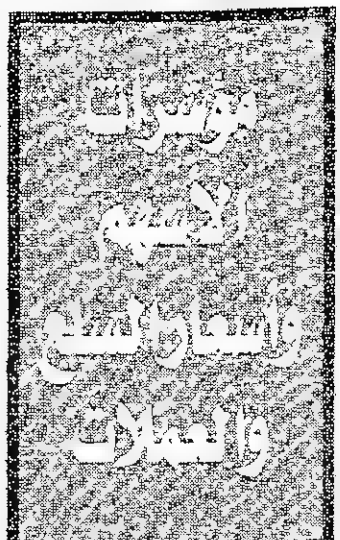 مؤشرات
الأسهم
وأسعار السلع
والعملات